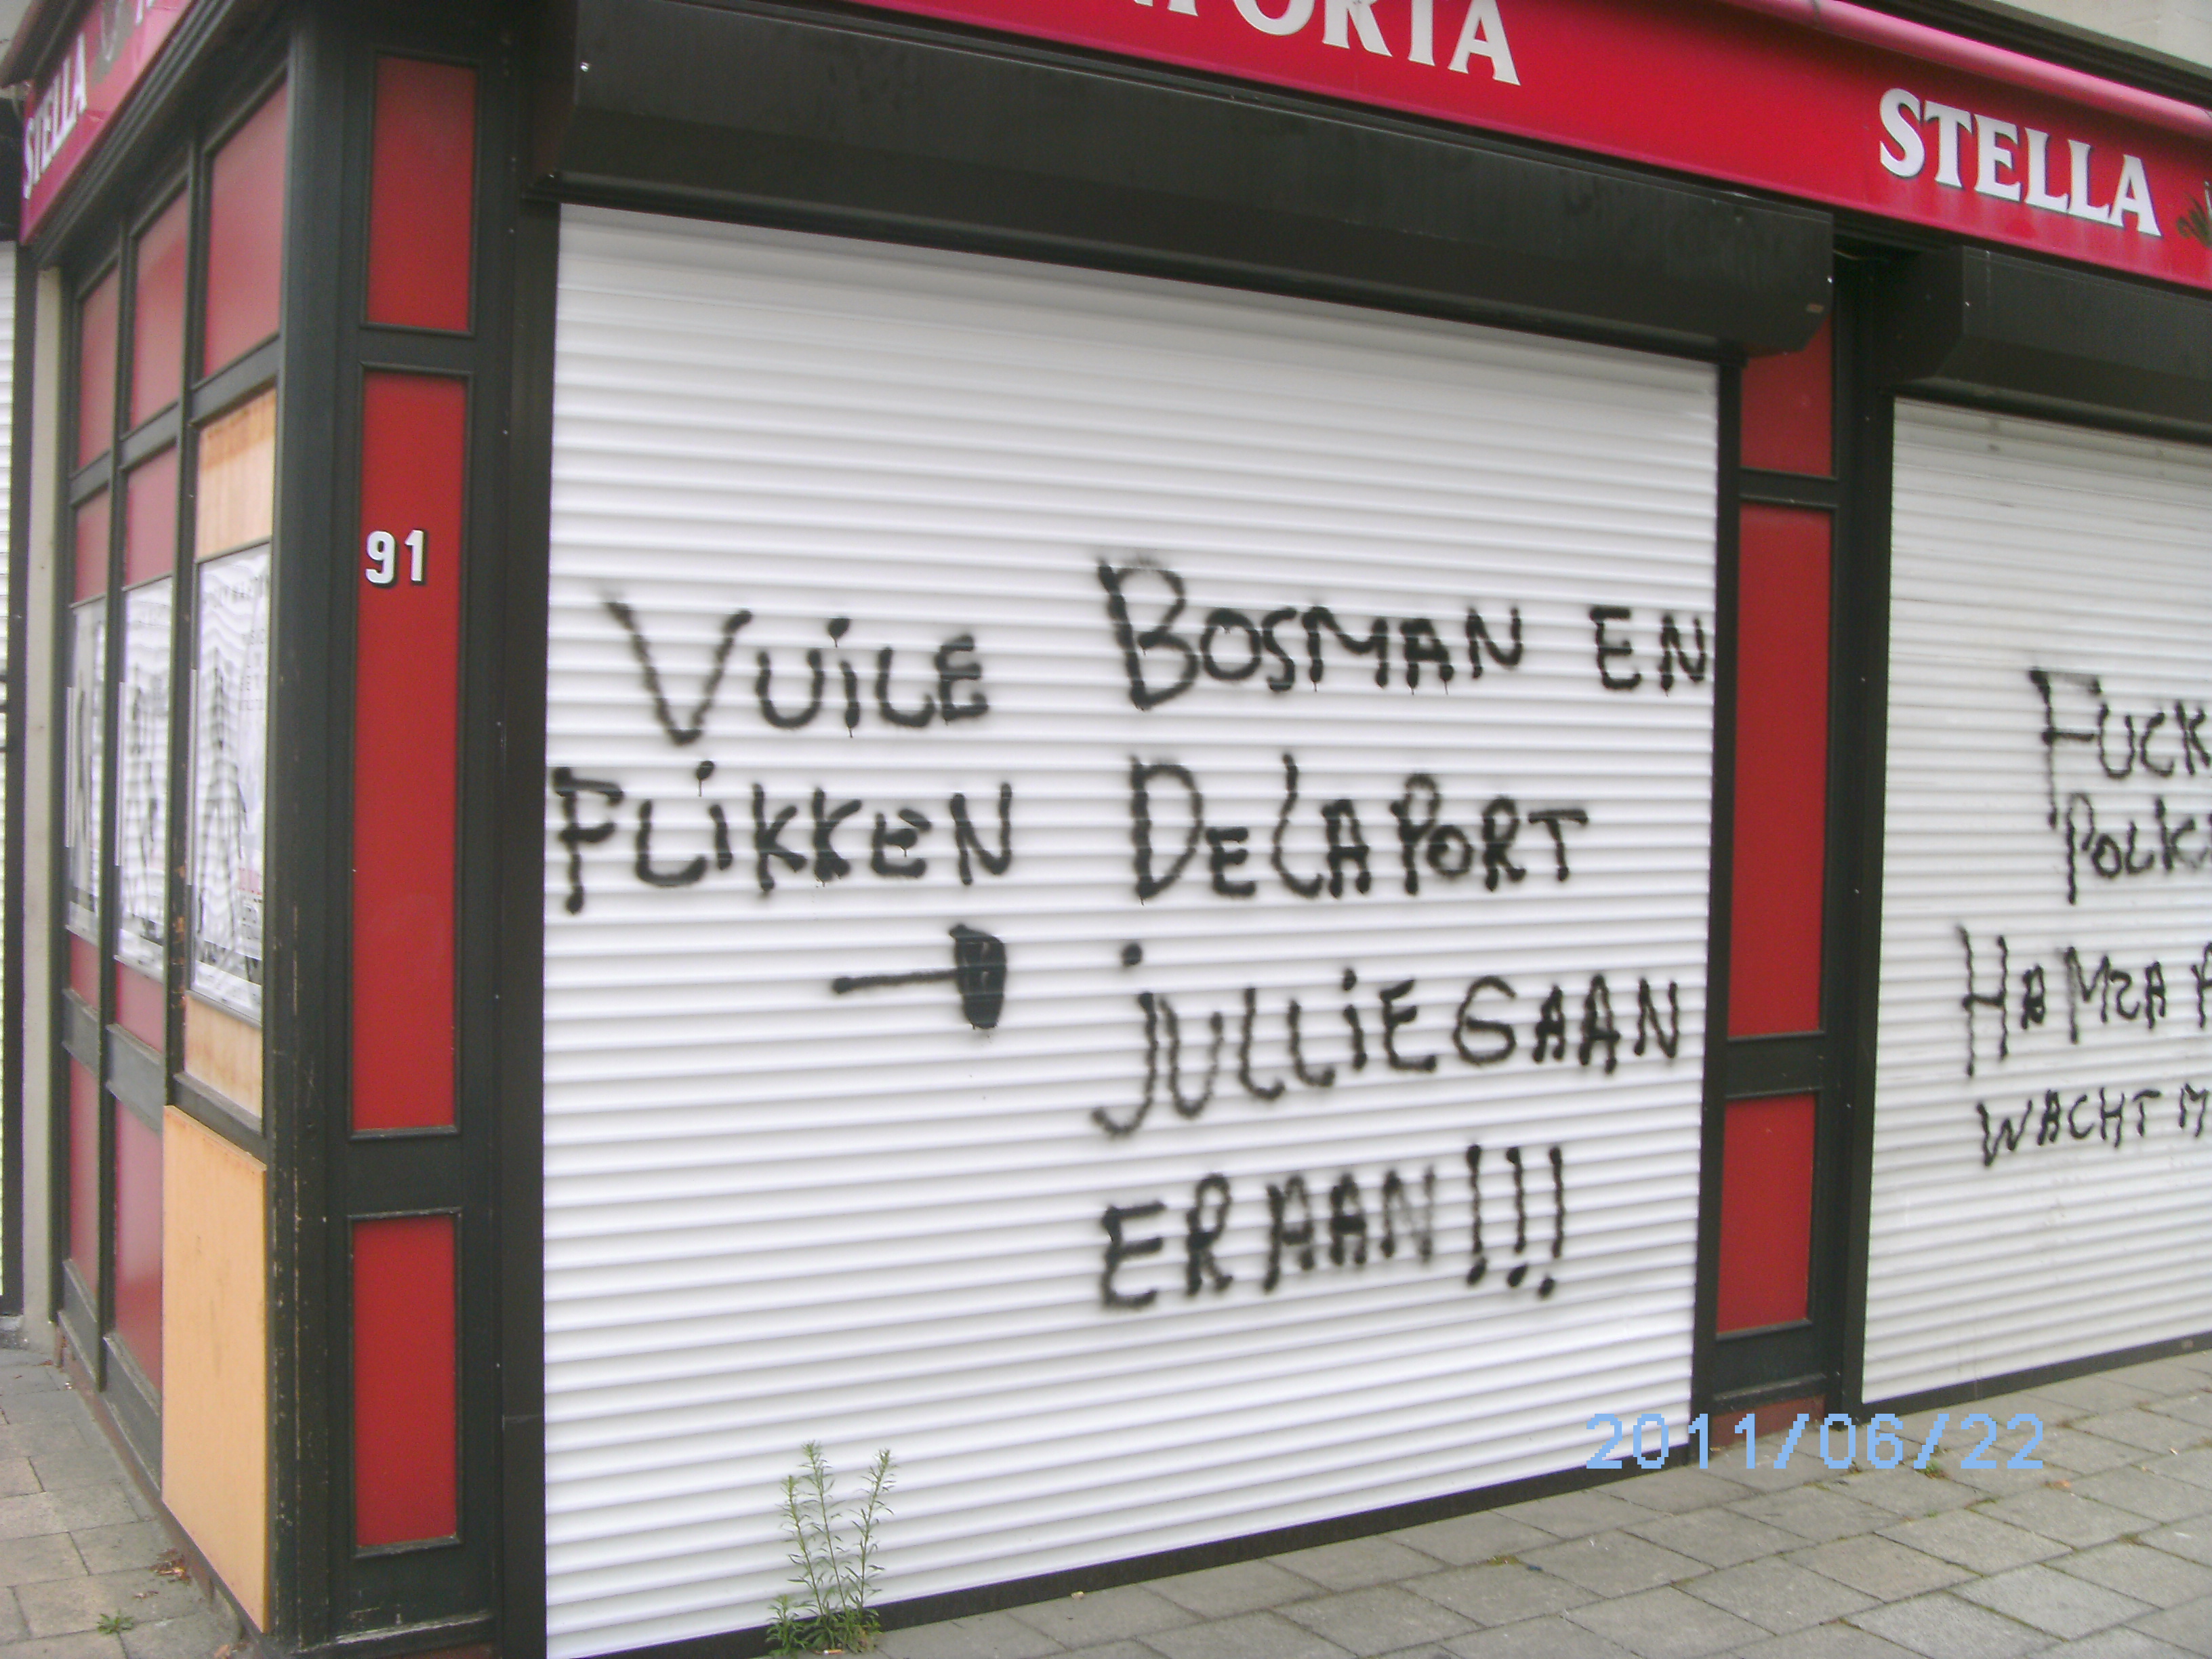 STELLA
STELLA
91
VUILE
FLIKKEN
BOSMAN EN
DELAPORT
JULLIE GAAN
ER AAN!!!
FUCK
HAMZA
WACHT
2011/06/22